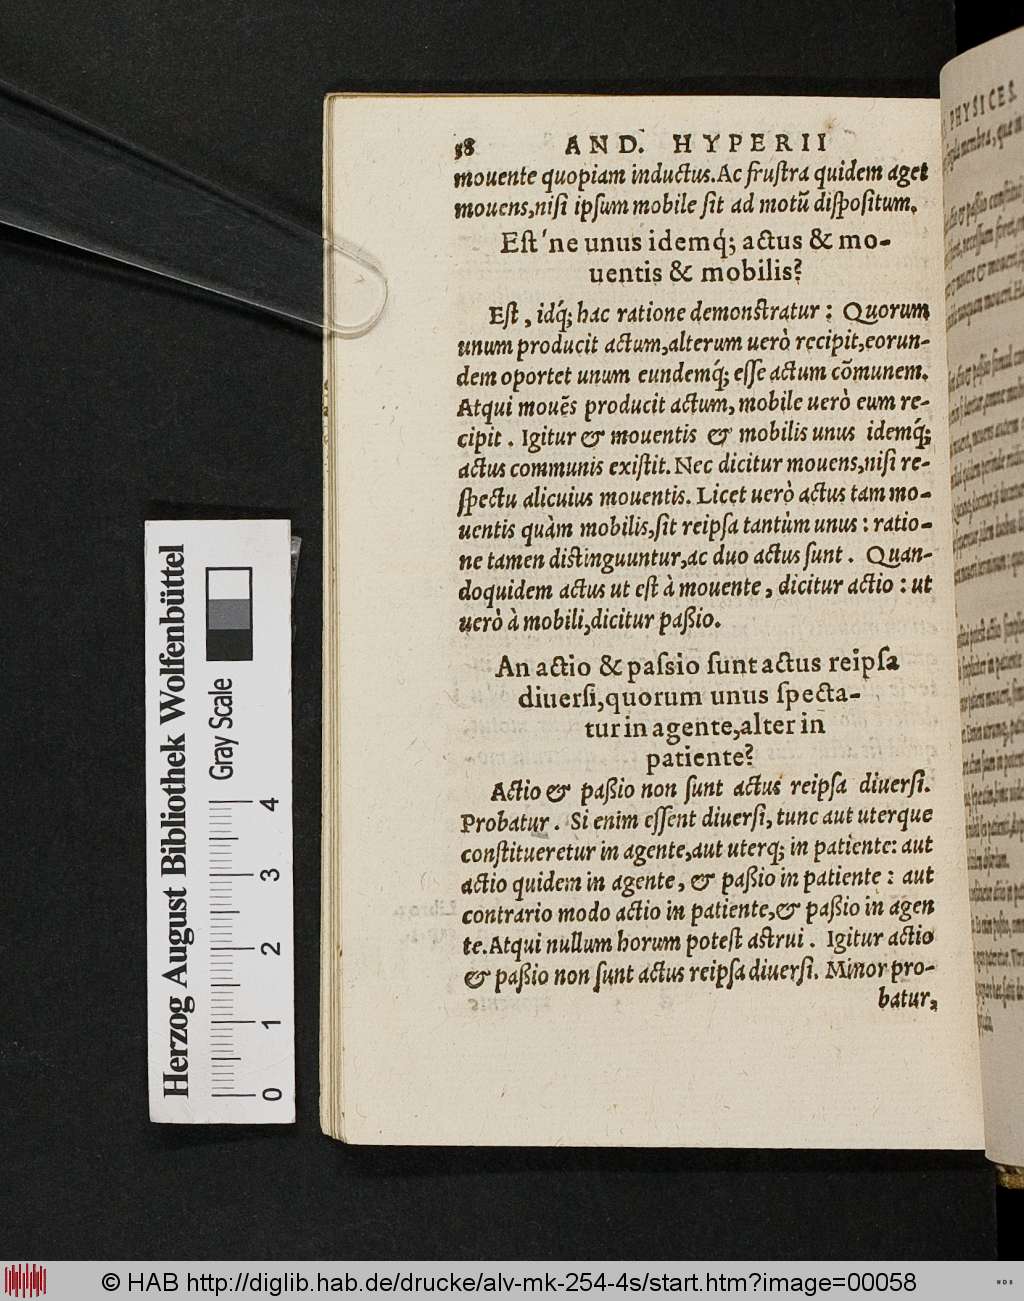 58 AND. HYPERII
mouente quopiam inductus. Ac fruſtra quidem aget
mouens, niſi ipſum mobile ſit ad motū diſpoſitum.
Eſt'ne unus idemq́; actus & mo-
uentis & mobilis?
Eſt, idq́; hac ratione demonſtratur: Quorum
unum producit actum, alterum uerò recipit, eorun-
dem oportet unum eundemq́; eſſe actum cōmunem.
Atqui mouēs producit actum, mobile uerò eum re-
cipit. Igitur & mouentis & mobilis unus idemq́;
actus communis exiſtit. Nec dicitur mouens, niſi re-
ſpectu alicuius mouentis. Licet uerò actus tam mo-
uentis quàm mobilis, ſit reipſa tantùm unus: ratio-
ne tamen diſtinguuntur, ac duo actus ſunt. Quan-
doquidem actus ut eſt à mouente, dicitur actio: ut
uerò à mobili, dicitur paßio.
An actio & paſsio ſunt actus reipſa
diuerſi, quorum unus ſpecta-
tur in agente, alter in
patiente?
Actio & paßio non ſunt actus reipſa diuerſi.
Probatur. Si enim eſſent diuerſi, tunc aut uterque
conſtitueretur in agente, aut uterq; in patiente: aut
actio quidem in agente, & paßio in patiente: aut
contrario modo actio in patiente, & paßio in agen
te. Atqui nullum horum poteſt aſtrui. Igitur actio
& paßio non ſunt actus reipſa diuerſi. Minor pro-
batur,
PHYSICES.
Herzog August Bibliothek Wolfenbüttel
Gray Scale
0 1 2 3 4
© HAB http://diglib.hab.de/drucke/alv-mk-254-4s/start.htm?image=00058